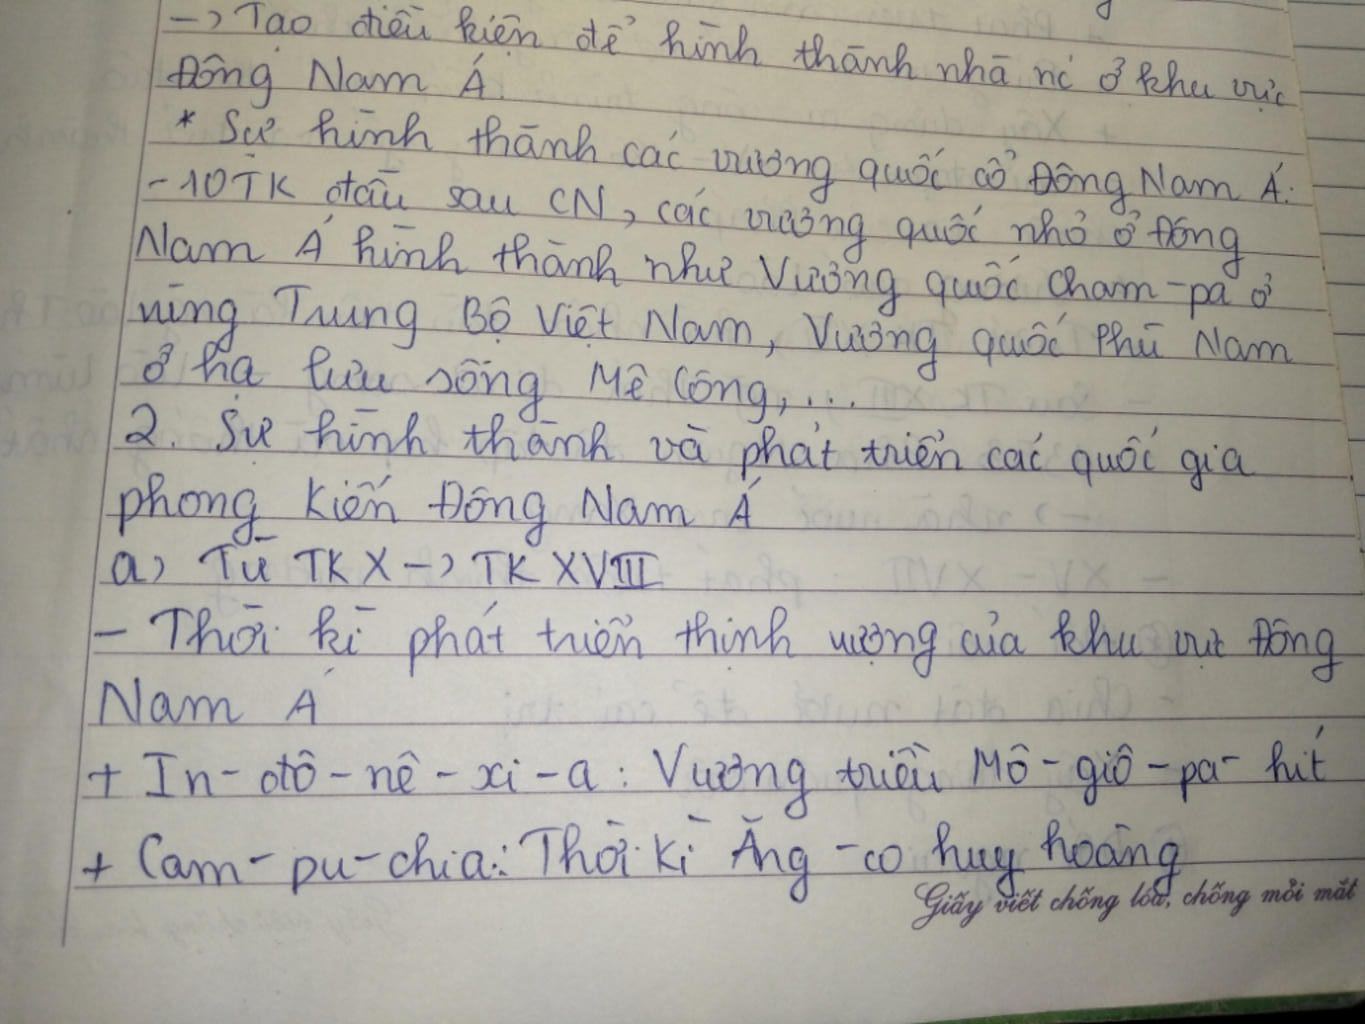 -> Tạo điều kiện để hình thành nhà nc ở khu vực
Đông Nam Á.
* Sự hình thành các vương quốc cổ Đông Nam Á.
- 10 TK đầu sau CN, các vương quốc nhỏ ở Đông
Nam Á hình thành như Vương quốc Cham-pa ở
vùng Trung Bộ Việt Nam, Vương quốc Phù Nam
ở hạ lưu sông Mê Công,...
2. Sự hình thành và phát triển các quốc gia
phong kiến Đông Nam Á
a) Từ TK X -> TK XVIII
- Thời kì phát triển thịnh vượng của khu vực Đông
Nam Á
+ In-đô-nê-xi-a: Vương triều Mô-giô-pa-hít
+ Cam-pu-chia: Thời kì Ăng-co huy hoàng
Giấy viết chống lóa, chống mỏi mắt